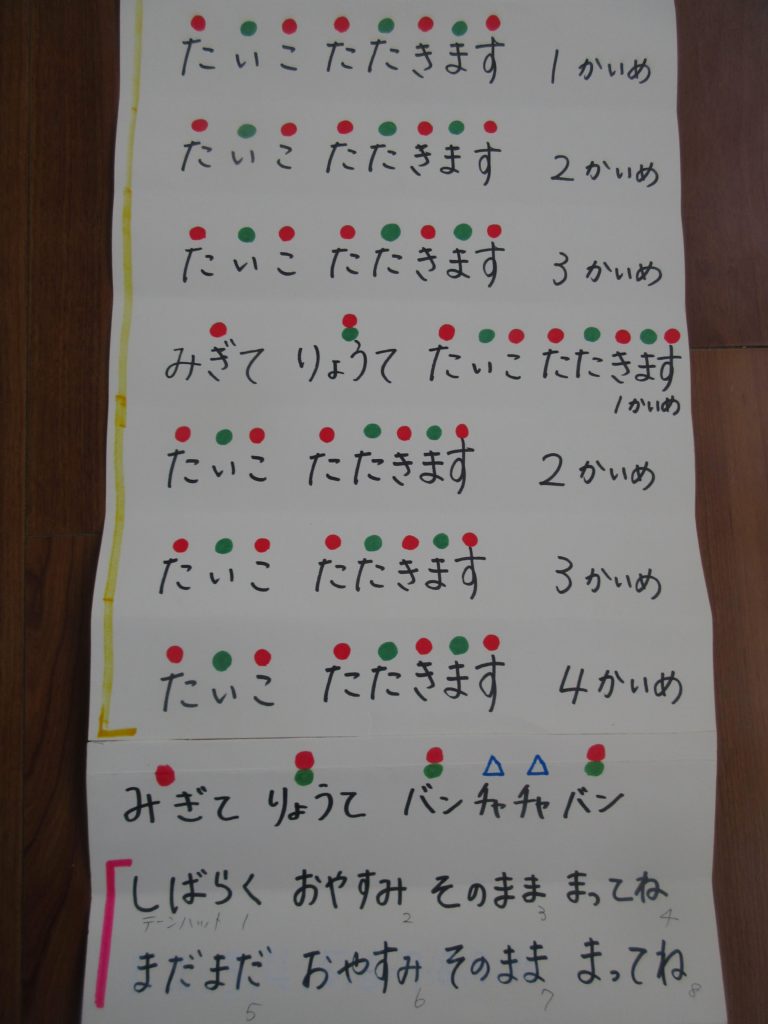 たいこ たたきます 1かいめ
たいこ たたきます 2かいめ
たいこ たたきます 3かいめ
みぎて りょうて たいこ たたきます
1かいめ
たいこ たたきます 2かいめ
たいこ たたきます 3かいめ
たいこ たたきます 4かいめ
みぎて りょうて バン チャ チャ バン
しばらく おやすみ そのまま まってね
テーンハット 1 2 3 4
まだまだ おやすみ そのまま まってね
5 6 7 8